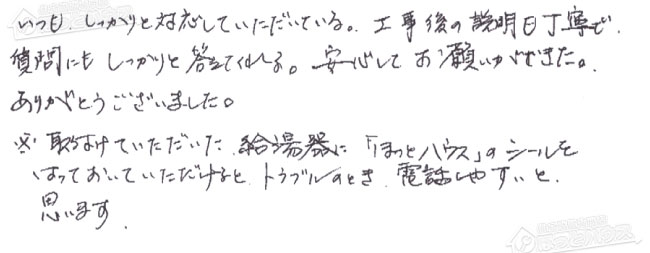 いつも、しっかりと対応していただいている。工事後の説明も丁寧で、
質問にもしっかりと答えてくれる。安心してお願いができた。
ありがとうございました。
※ 取付けていただいた給湯器に「ほっとハウス」のシールを
はっておいていただけると、トラブルのとき、電話しやすいと、
思います。